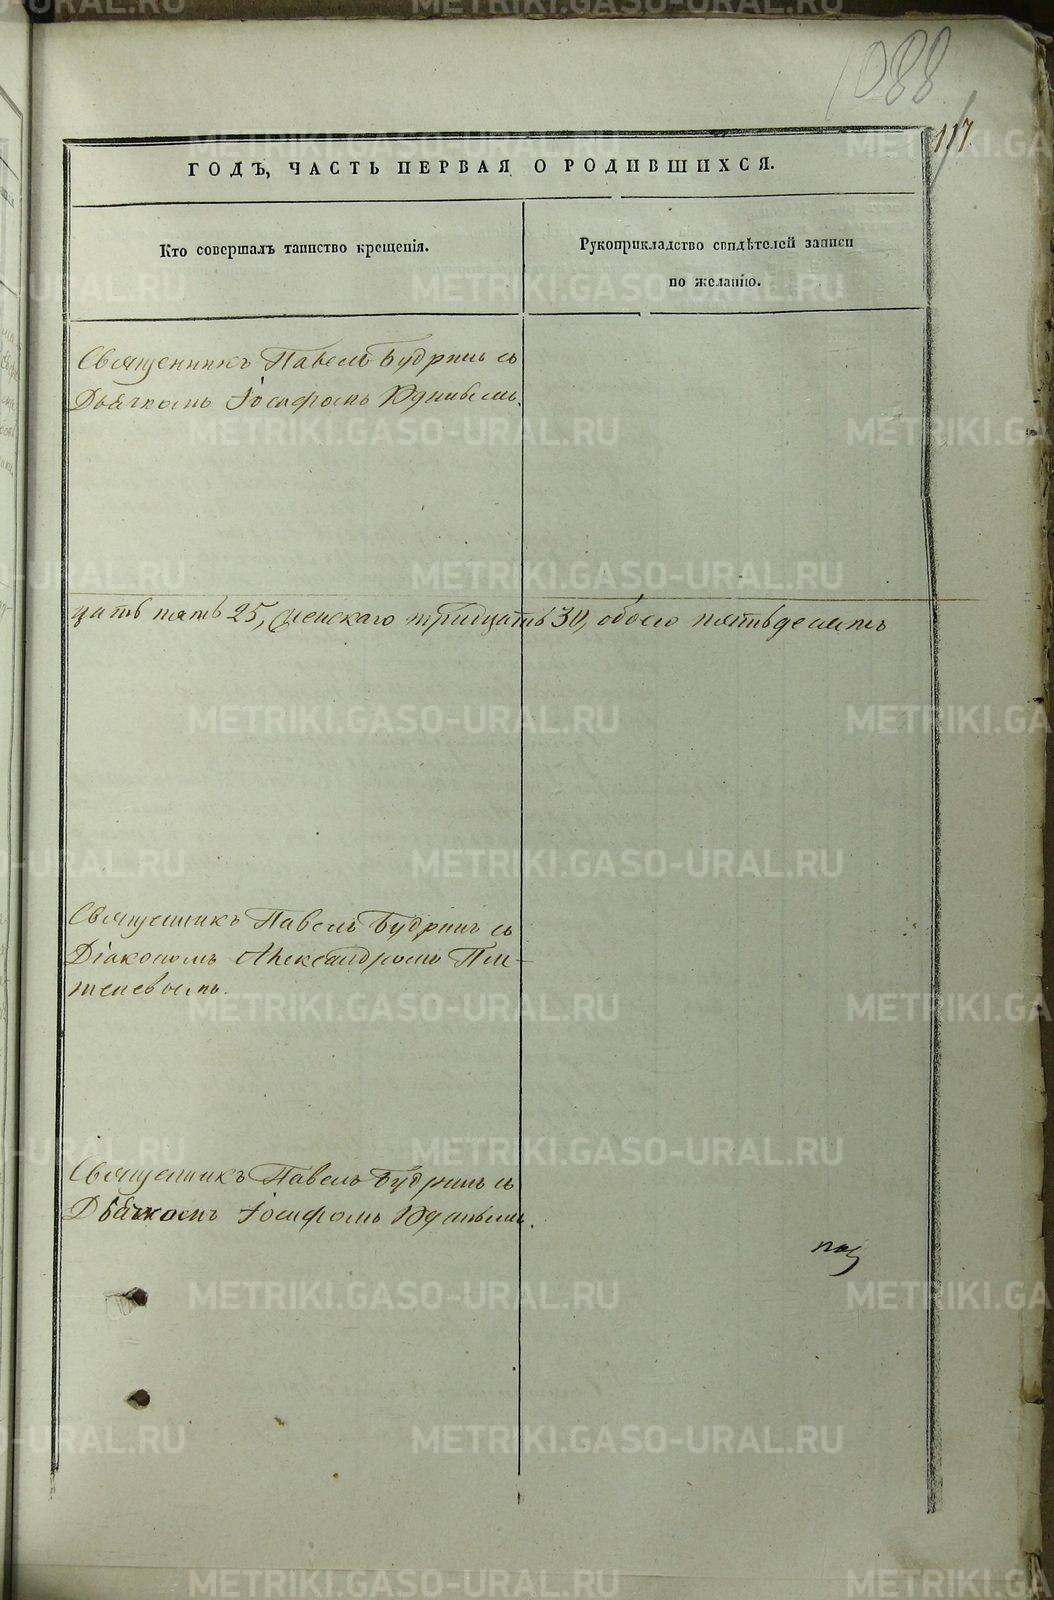 1088
117
ГОДЪ, ЧАСТЬ ПЕРВАЯ О РОДИВШИХСЯ.
Кто совершалъ таинство крещенія.
Рукоприкладство свидѣтелей записи
по желанію.
Священникъ Павелъ Будринъ съ
Дьячкомъ Іосифомъ Юдинымъ.
цать пять 25, женскаго тридцать 30, обоего пятьдесятъ
Священникъ Павелъ Будринъ съ
Діакономъ Александромъ
Священникъ Павелъ Будринъ съ
Дьячкомъ Іосифомъ Юдинымъ.
METRIKI.GASO-URAL.RU